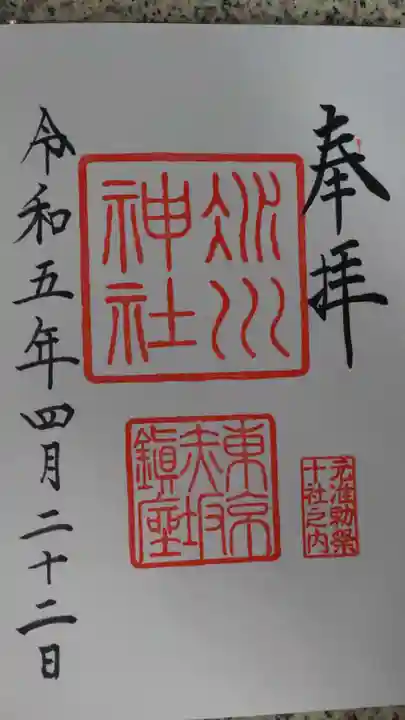 奉拝
氷川
神社
東京
赤坂
鎮座
元准勅祭
十社之内
令和五年四月二十二日